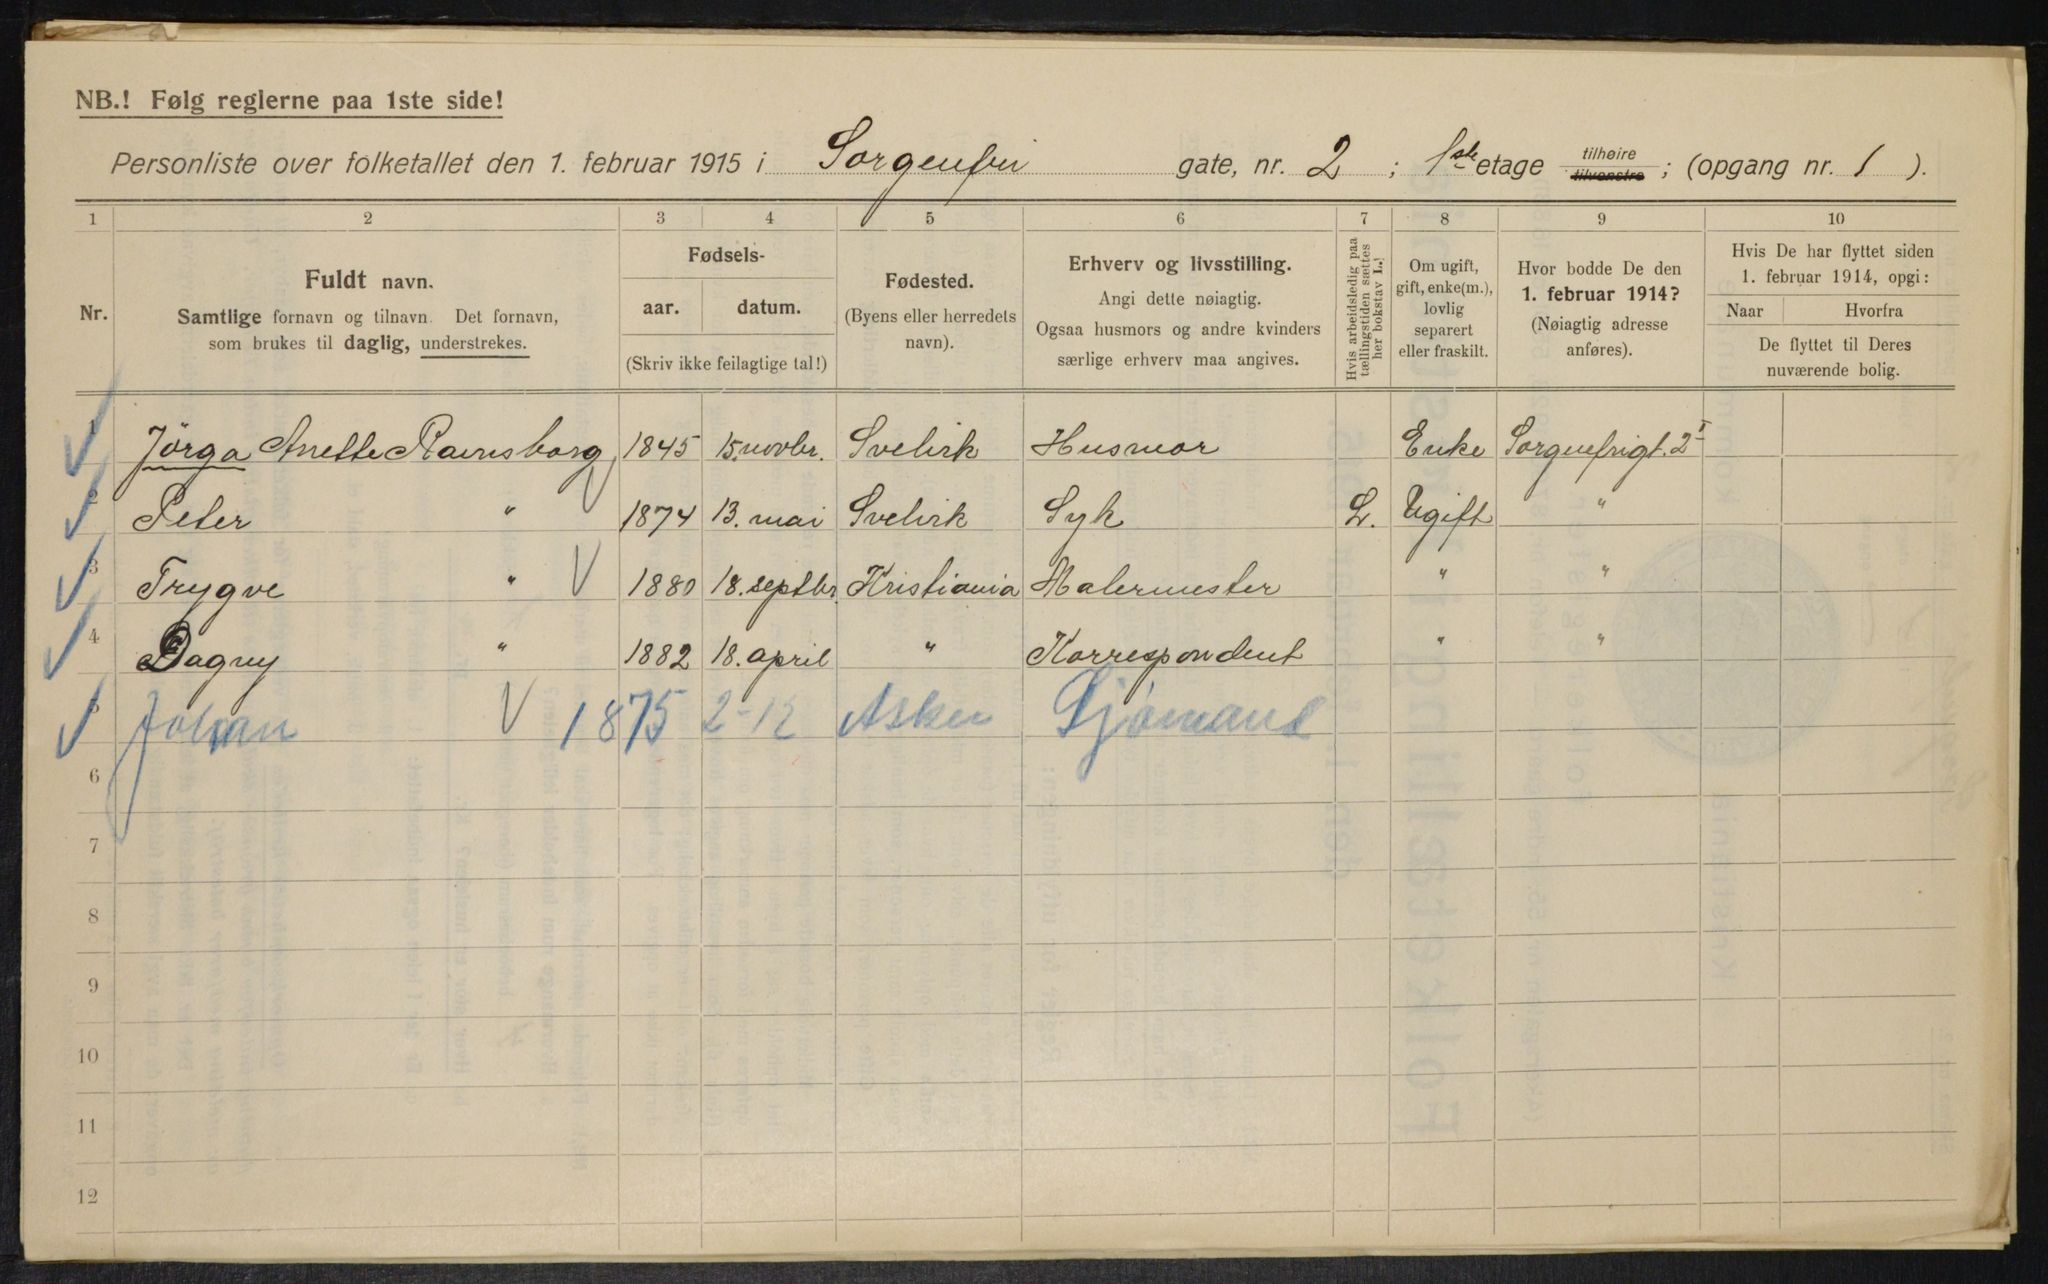 NB.! Følg reglerne paa 1ste side!
Personliste over folketallet den 1. februar 1915 i Sorgenfri gate, nr. 2 ; 1ste etage tilhøire tilvenstre ; (opgang nr. 1 ).
1 2 3 4 5 6 7 8 9 10
Nr.
Fuldt navn.
Samtlige fornavn og tilnavn. Det fornavn,
som brukes til daglig, understrekes.
Fødsels-
aar. datum.
(Skriv ikke feilagtige tal!)
Fødested.
(Byens eller herredets
navn).
Erhverv og livsstilling.
Angi dette nøiagtig.
Ogsaa husmors og andre kvinders
særlige erhverv maa angives.
Hvis arbeidsledig paa
tællingstiden sættes
her bokstav L.!
Om ugift,
gift, enke(m.),
lovlig
separert
eller fraskilt.
Hvor bodde De den
1. februar 1914?
(Nøiagtig adresse
anføres).
Hvis De har flyttet siden
1. februar 1914, opgi:
Naar Hvorfra
De flyttet til Deres
nuværende bolig.
1 Jörga Anette Ravnsborg 1845 15. novbr. Svelvik Husmor Enke Sorgenfrigt. 2 I
2 Peter " 1874 13. mai Svelvik Syk L. Ugift "
3 Trygve " 1880 18. septbr. Kristiania Malermester " "
4 Dagny " 1882 18. april " Korrespondent " "
5 Johan 1875 2-12 Asker Sjømand
6
7
8
9
10
11
12